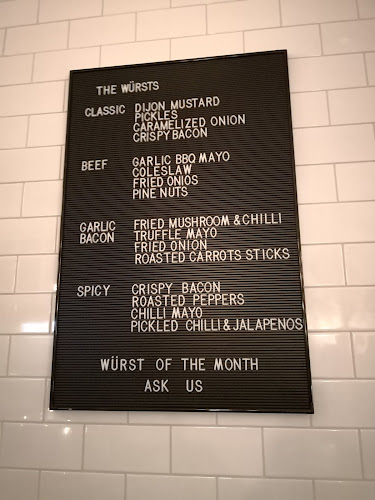 THE WÜRSTS
CLASSIC DIJON MUSTARD
PICKLES
CARAMELIZED ONION
CRISPY BACON
BEEF GARLIC BBQ MAYO
COLESLAW
FRIED ONIOS
PINE NUTS
GARLIC FRIED MUSHROOM & CHILLI
BACON TRUFFLE MAYO
FRIED ONION
ROASTED CARROTS STICKS
SPICY CRISPY BACON
ROASTED PEPPERS
CHILLI MAYO
PICKLED CHILLI & JALAPENOS
WÜRST OF THE MONTH
ASK US